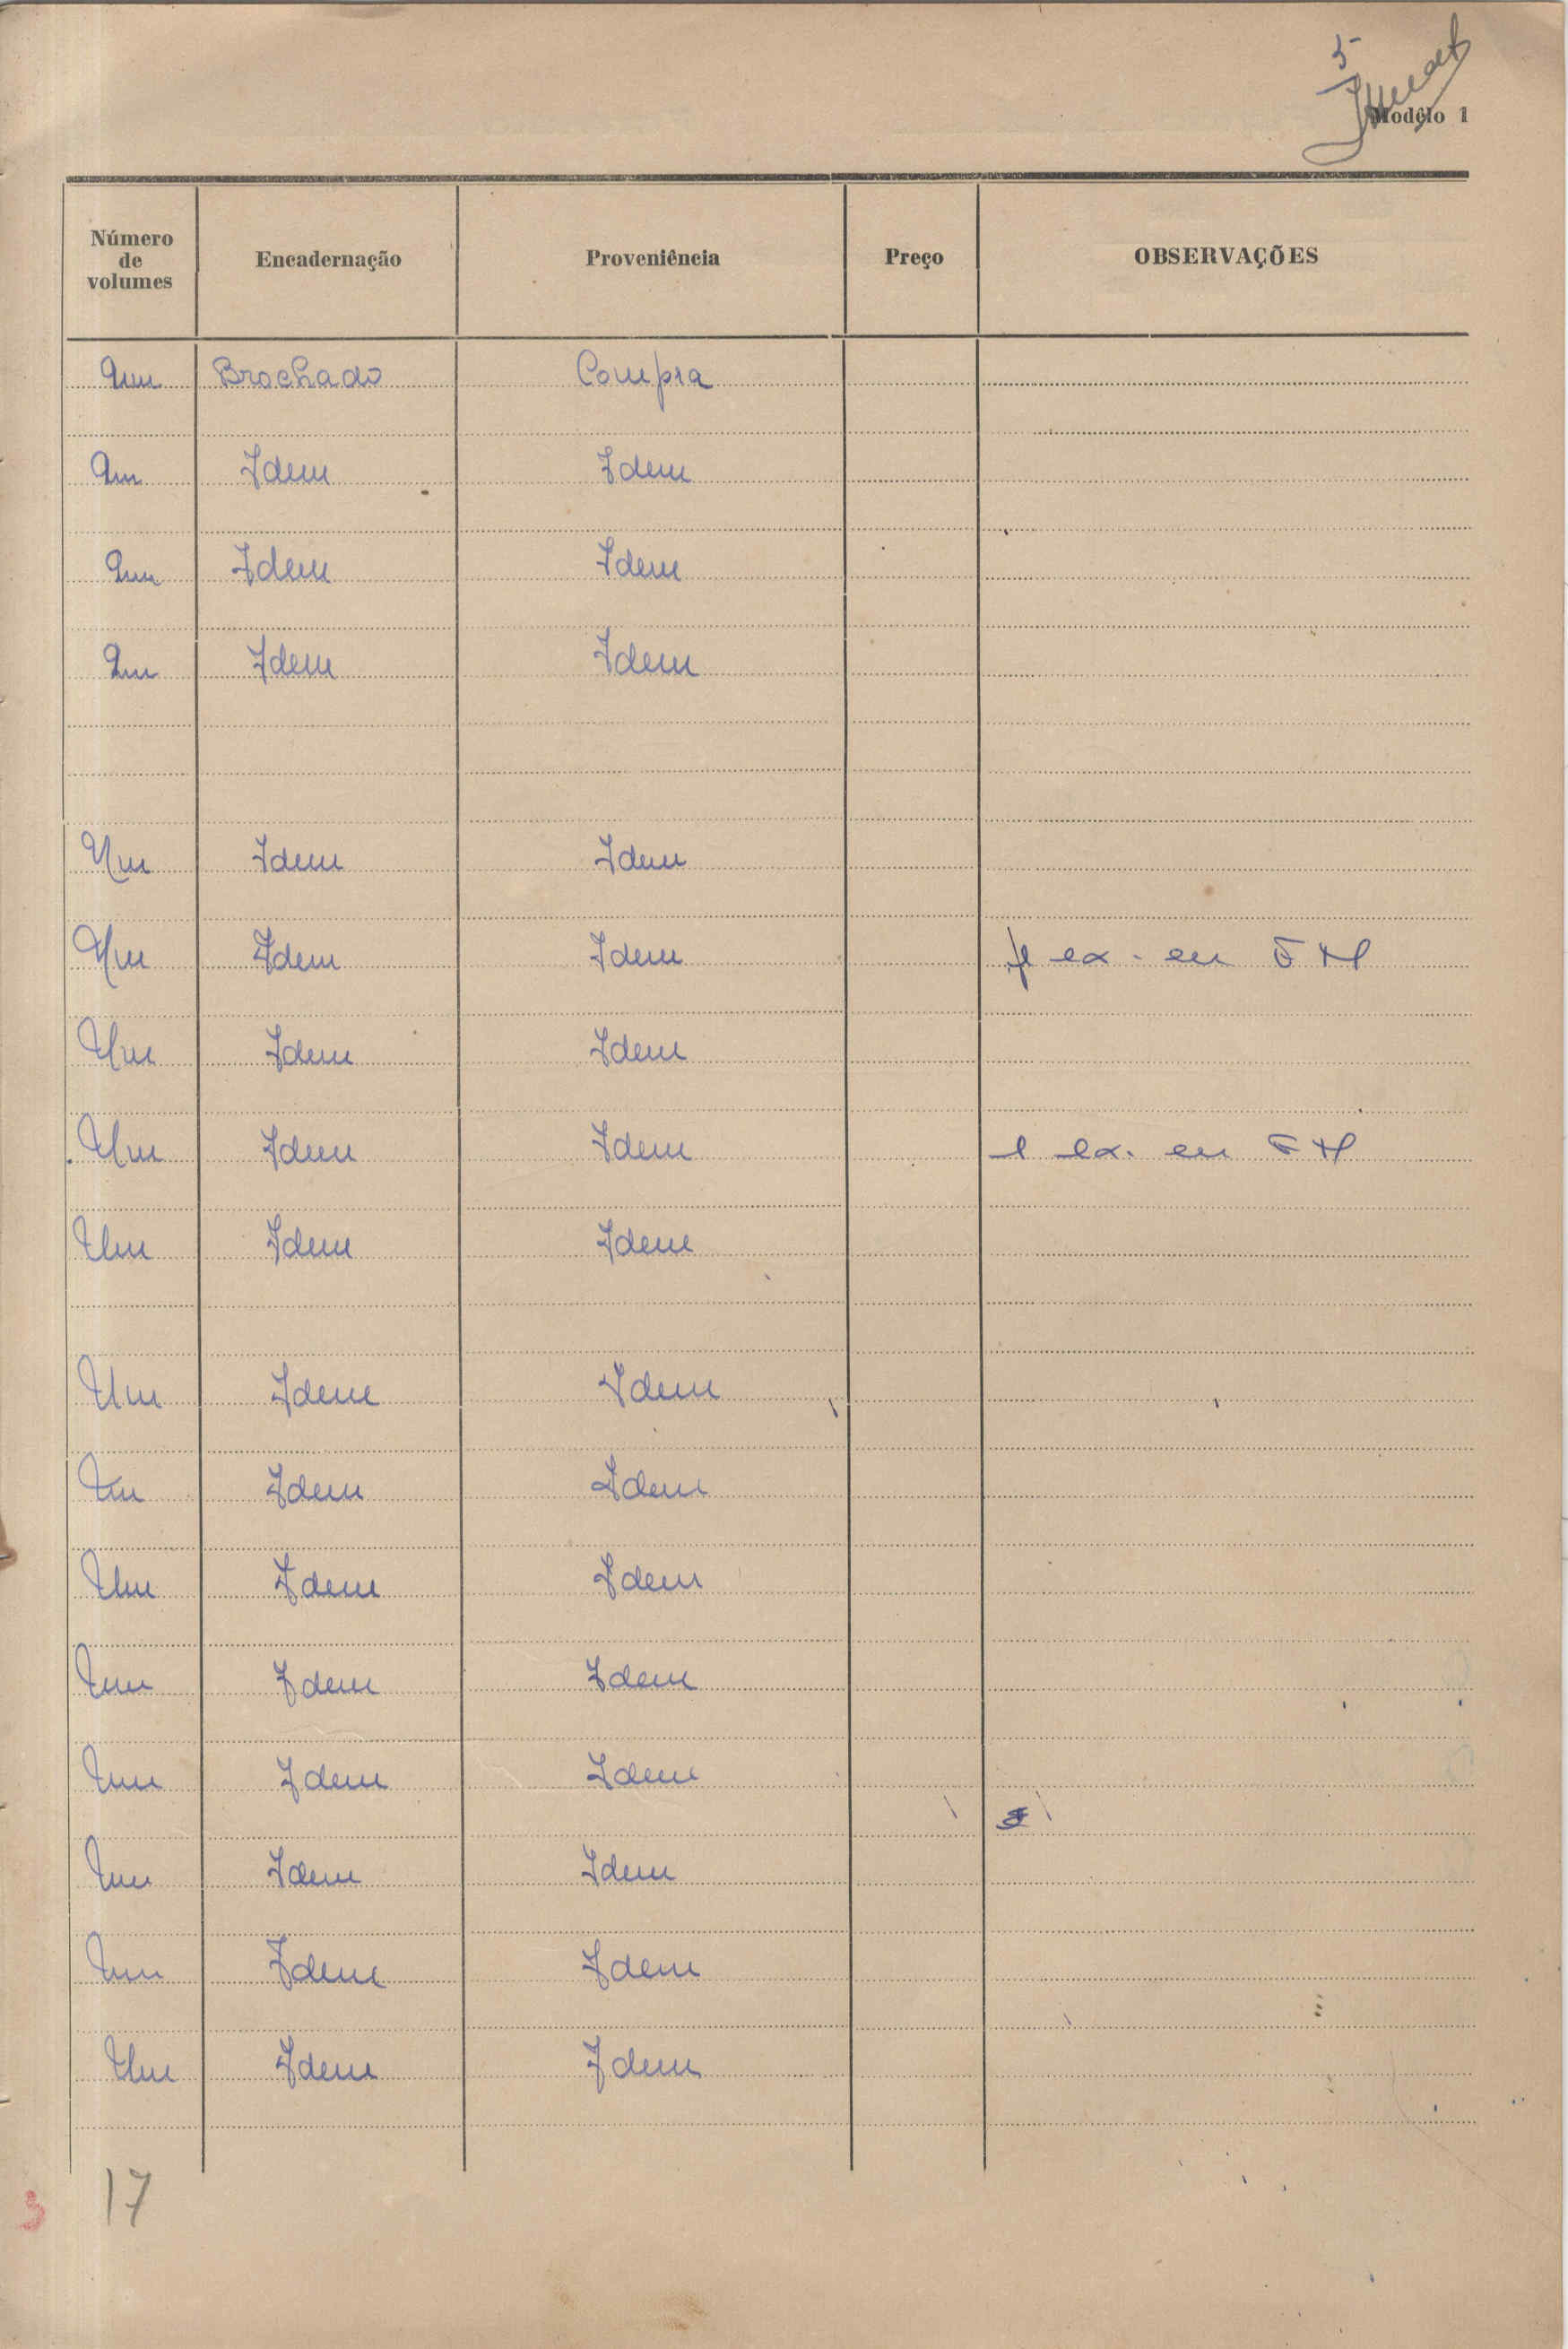 5
Modêlo 1
Número de volumes Encadernação Proveniência Preço OBSERVAÇÕES
Um Brochado Compra
Um Idem Idem
Um Idem Idem
Um Idem Idem
Um Idem Idem
Um Idem Idem 1 ex. em
Um Idem Idem
Um Idem Idem 1 ex. em
Um Idem Idem
Um Idem Idem
Um Idem Idem
Um Idem Idem
Um Idem Idem
Um Idem Idem
Um Idem Idem
Um Idem Idem
Um Idem Idem
17